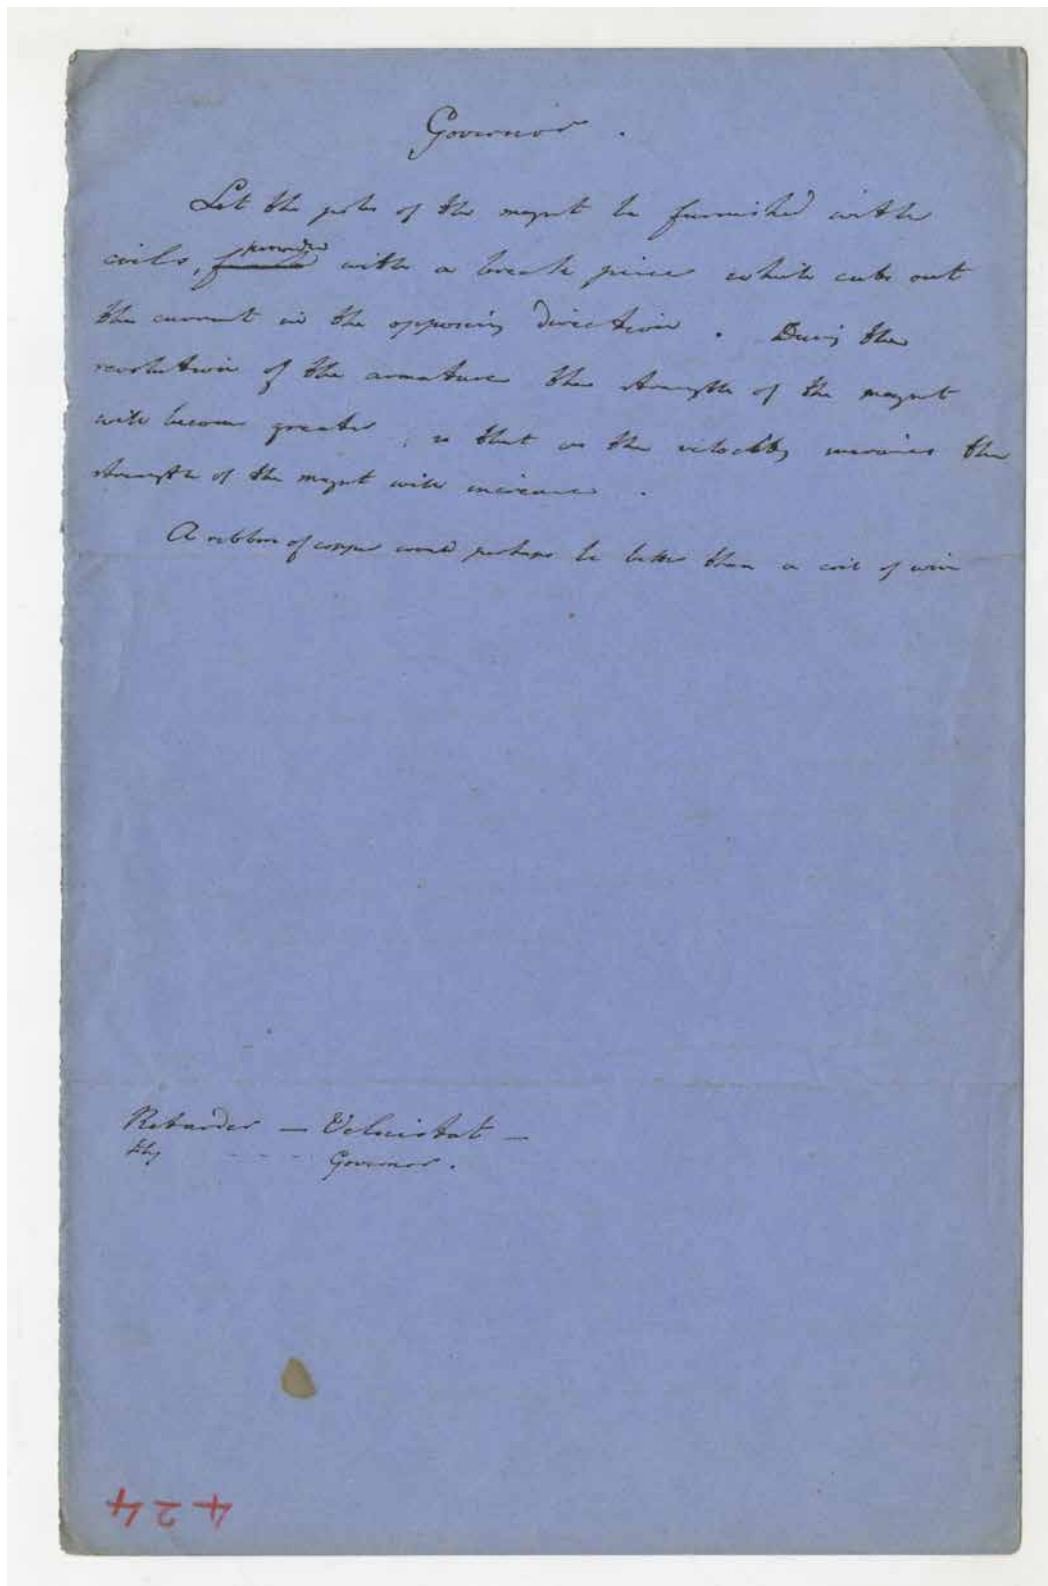 Governor.
Let the poles of the magnet be furnished with
provided
coils, with a break piece which cuts out
the current in the opposing direction. During the
revolution of the armature the strength of the magnet
will become greater, so that as the velocity increases the
strength of the magnet will increase.
A ribbon of copper would perhaps be better than a coil of wire
Retarder — Velocistat —
Governor.
424